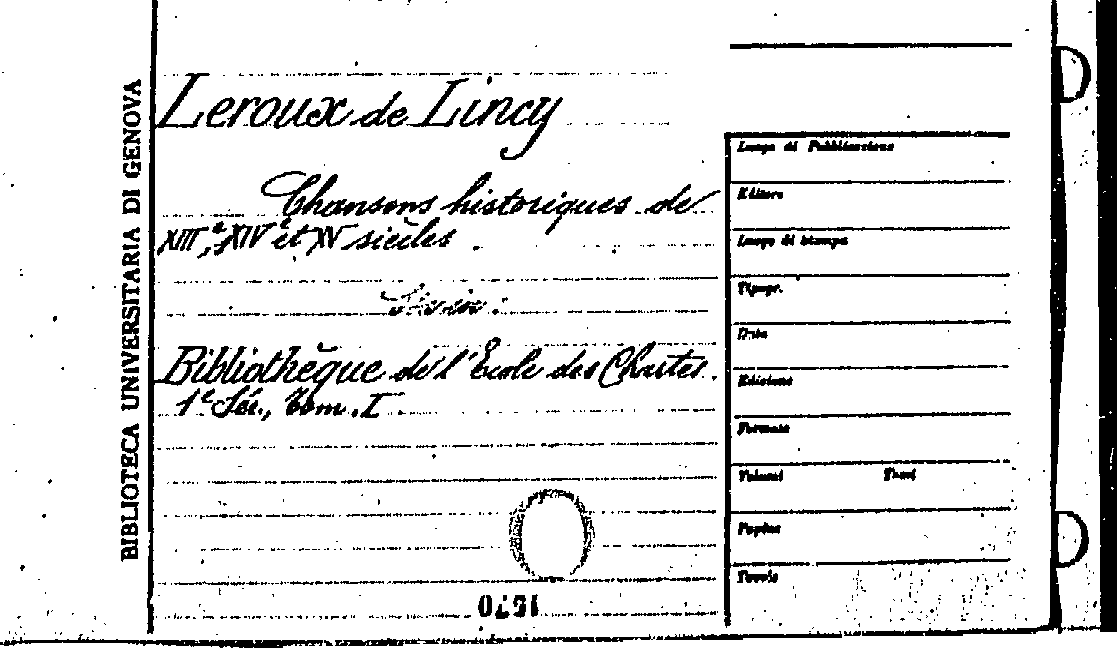 BIBLIOTECA UNIVERSITARIA DI GENOVA
Leroux de Lincy
Chansons historiques de
XIII,e XIVe et XV siècles.
Bibliothèque de l'Ecole des Chartes.
1e Sér., Tom. I.
Luogo di Pubblicazione
Editore
Luogo di stampa
Tipogr.
Data
Edizione
Formato
Volumi Tomi
Pagine
Tavole